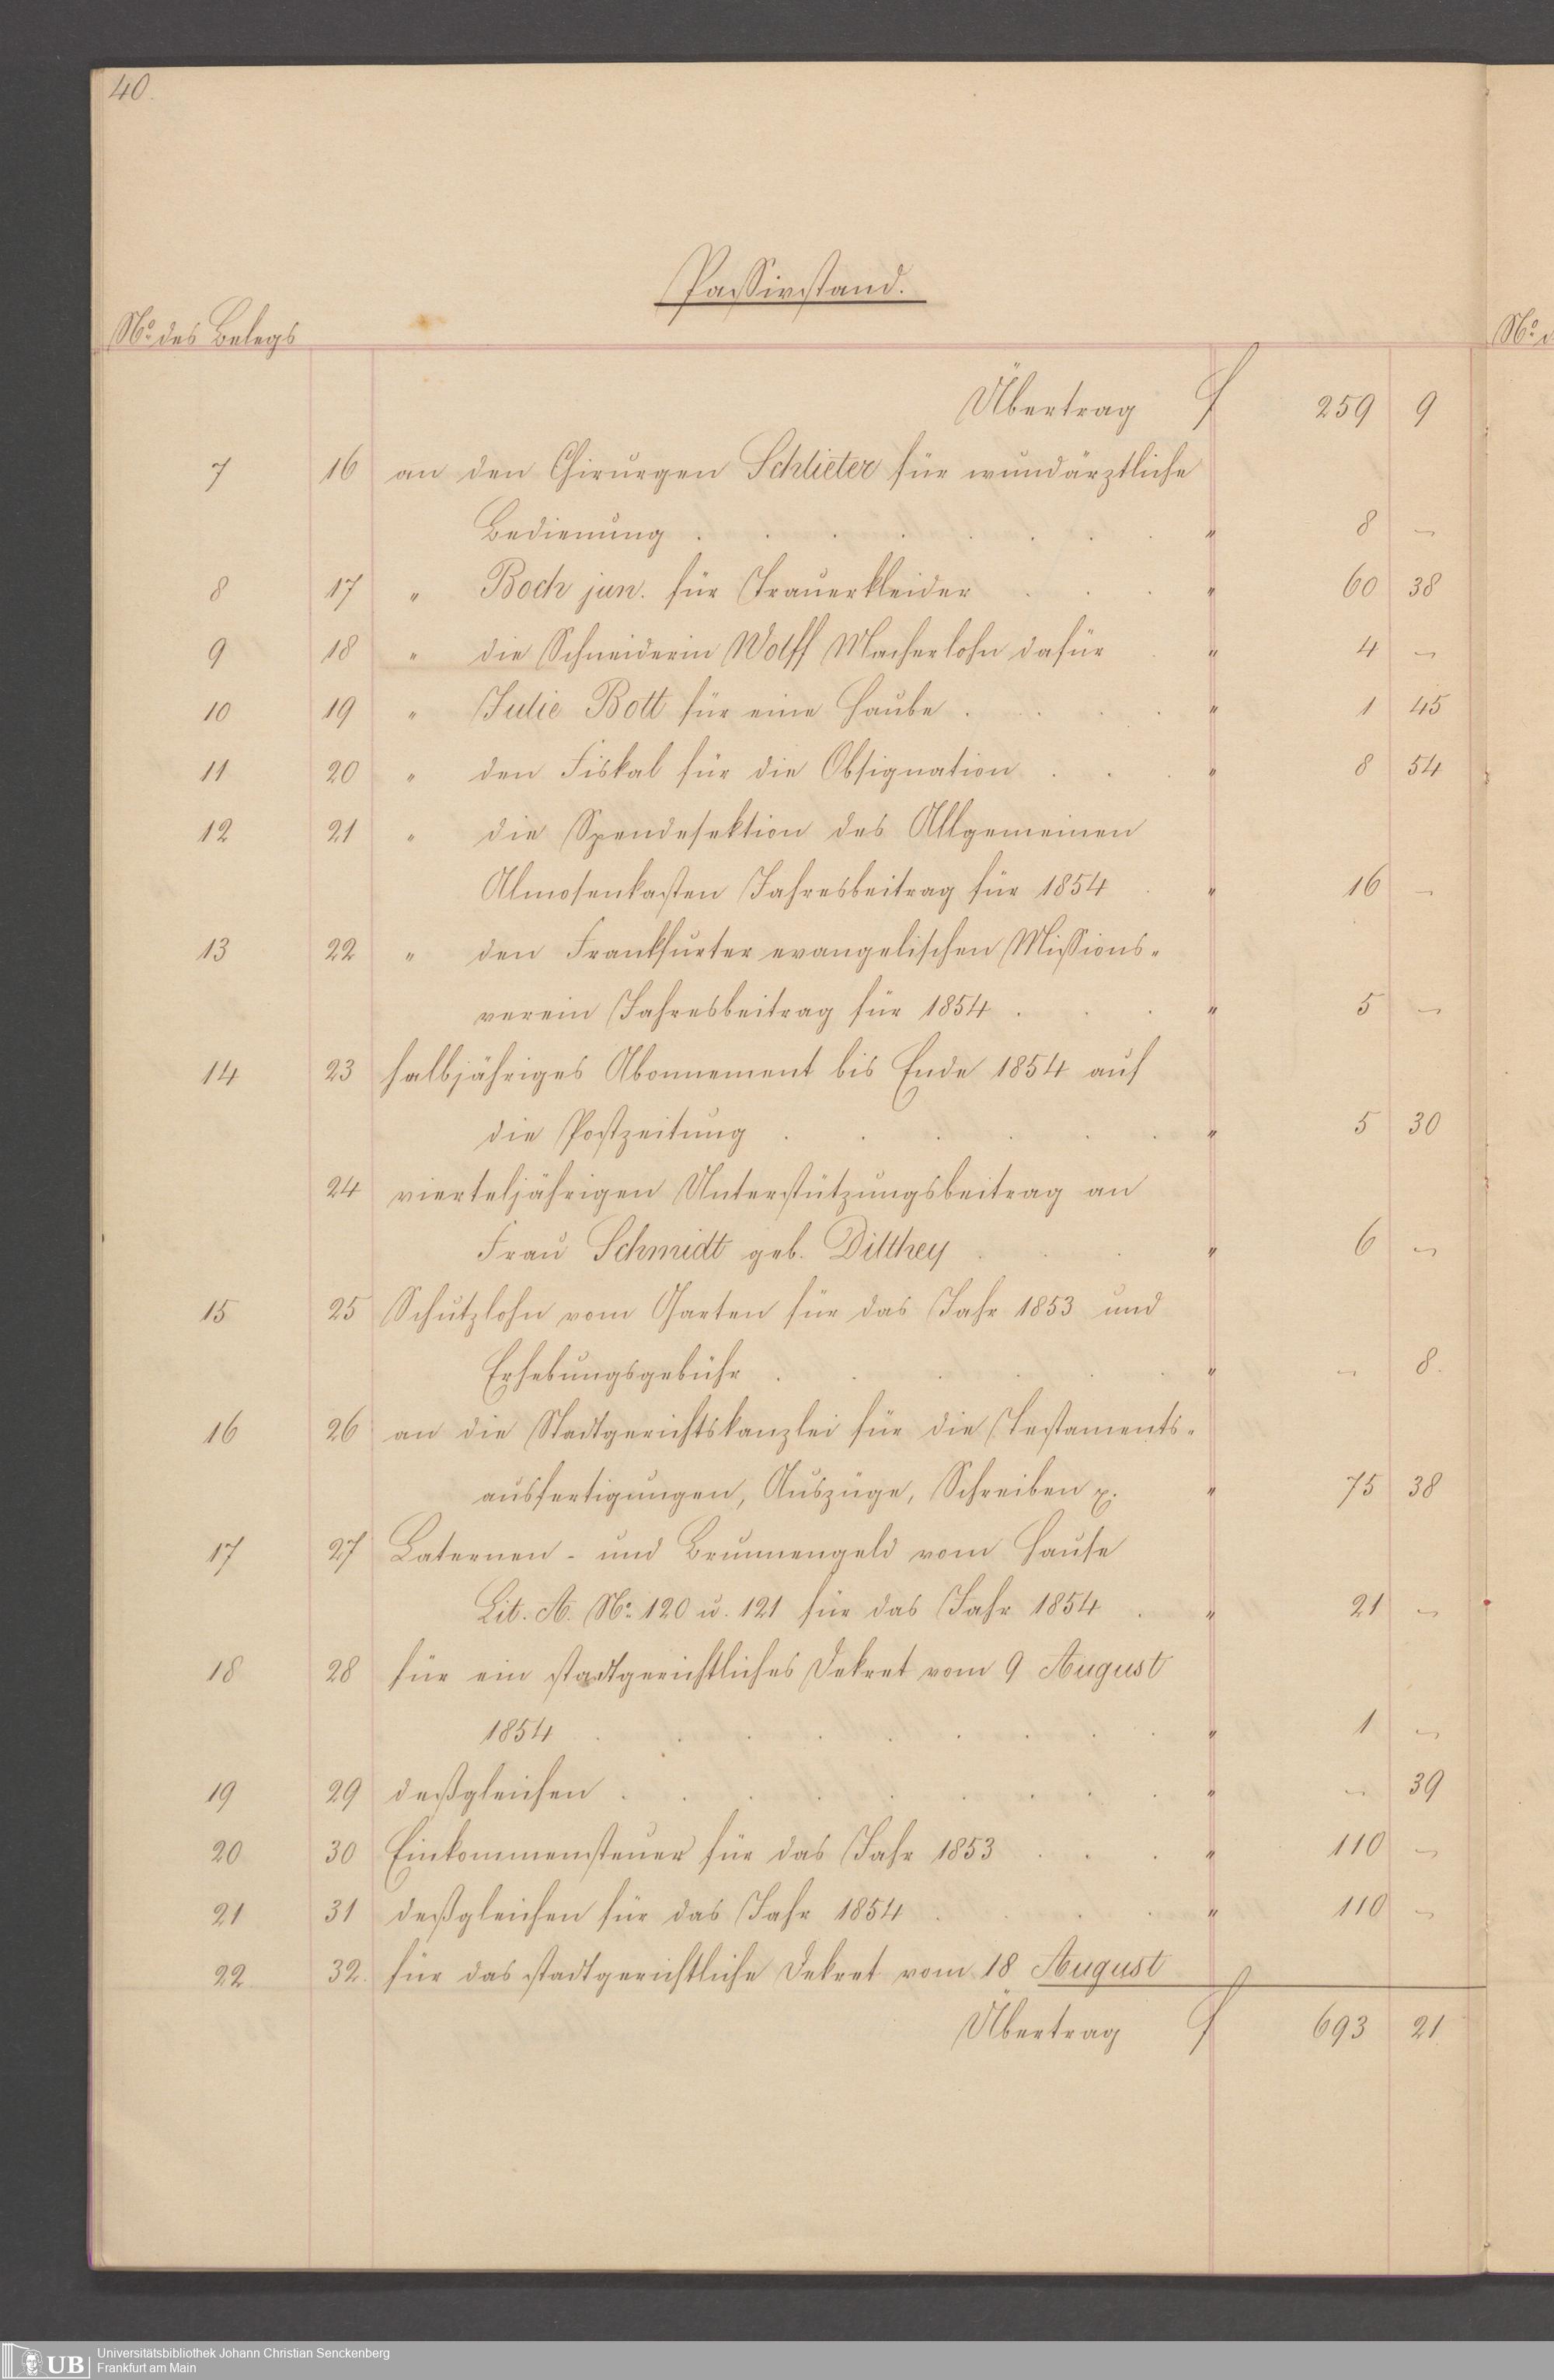 40.
Passivstand.
No. des Belegs
Übertrag f 259 9
7 16 an den Chirurgen Schlieter für wundärztliche
Bedienung . . . . . . . . " 8 –
8 17 " Boch jun. für Trauerkleider . . . " 60 38
9 18 " die Schneiderin Wolff Macherlohn dafür . " 4 –
10 19 " Julie Bott für eine Haube . . . . " 1 45
11 20 " den Fiskal für die Obsignation . . . " 8 54
12 21 " die Spendesektion des Allgemeinen
Almosenkasten Jahresbeitrag für 1854 . " 16 –
13 22 " den Frankfurter evangelischen Missions-
verein Jahresbeitrag für 1854 . . . " 5 –
14 23 halbjähriges Abonnement bis Ende 1854 auf
die Postzeitung . . . . . . " 5 30
24 vierteljährigen Unterstützungsbeitrag an
Frau Schmidt geb. Dilthey . . . " 6 –
15 25 Schutzlohn vom Garten für das Jahr 1853 und
Erhebungsgebühr . . . . . . " – 8.
16 26 an die Stadtgerichtskanzlei für die Testaments-
ausfertigungen, Auszüge, Schreiben x. " 75 38
17 27 Laternen- und Brunnengeld vom Hause
Lit. A. No. 120 u. 121 für das Jahr 1854 . " 21 –
18 28 für ein stadtgerichtliches Dekret vom 9 August
1854 . . . . . . . . . " 1 –
19 29 deßgleichen . . . . . . . . " – 39
20 30 Einkommensteuer für das Jahr 1853 . . . " 110 –
21 31 deßgleichen für das Jahr 1854 . . . . " 110 –
22 32. für das stadtgerichtliche Dekret vom 18 August
Übertrag f 693 21
No. d
UB Universitätsbibliothek Johann Christian Senckenberg
Frankfurt am Main